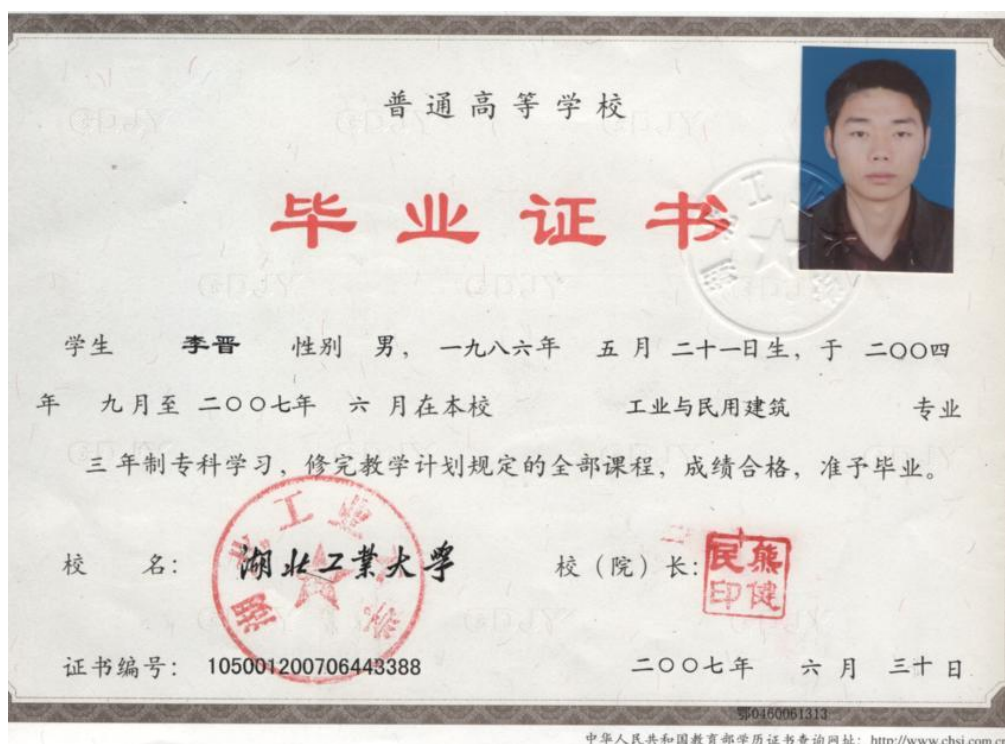 普通高等学校
毕业证书
学生 李晋 性别 男，一九八六年 五月 二十一日生，于 二〇〇四
年 九月至 二〇〇七年 六 月在本校 工业与民用建筑 专业
三 年制专科学习，修完教学计划规定的全部课程，成绩合格，准予毕业。
校 名： 湖北工業大學
校（院）长： 熊健民印
证书编号： 105001200706443388
二〇〇七年 六 月 三十 日
鄂0460061313
中华人民共和国教育部学历证书查询网址：http://www.chsi.com.cn